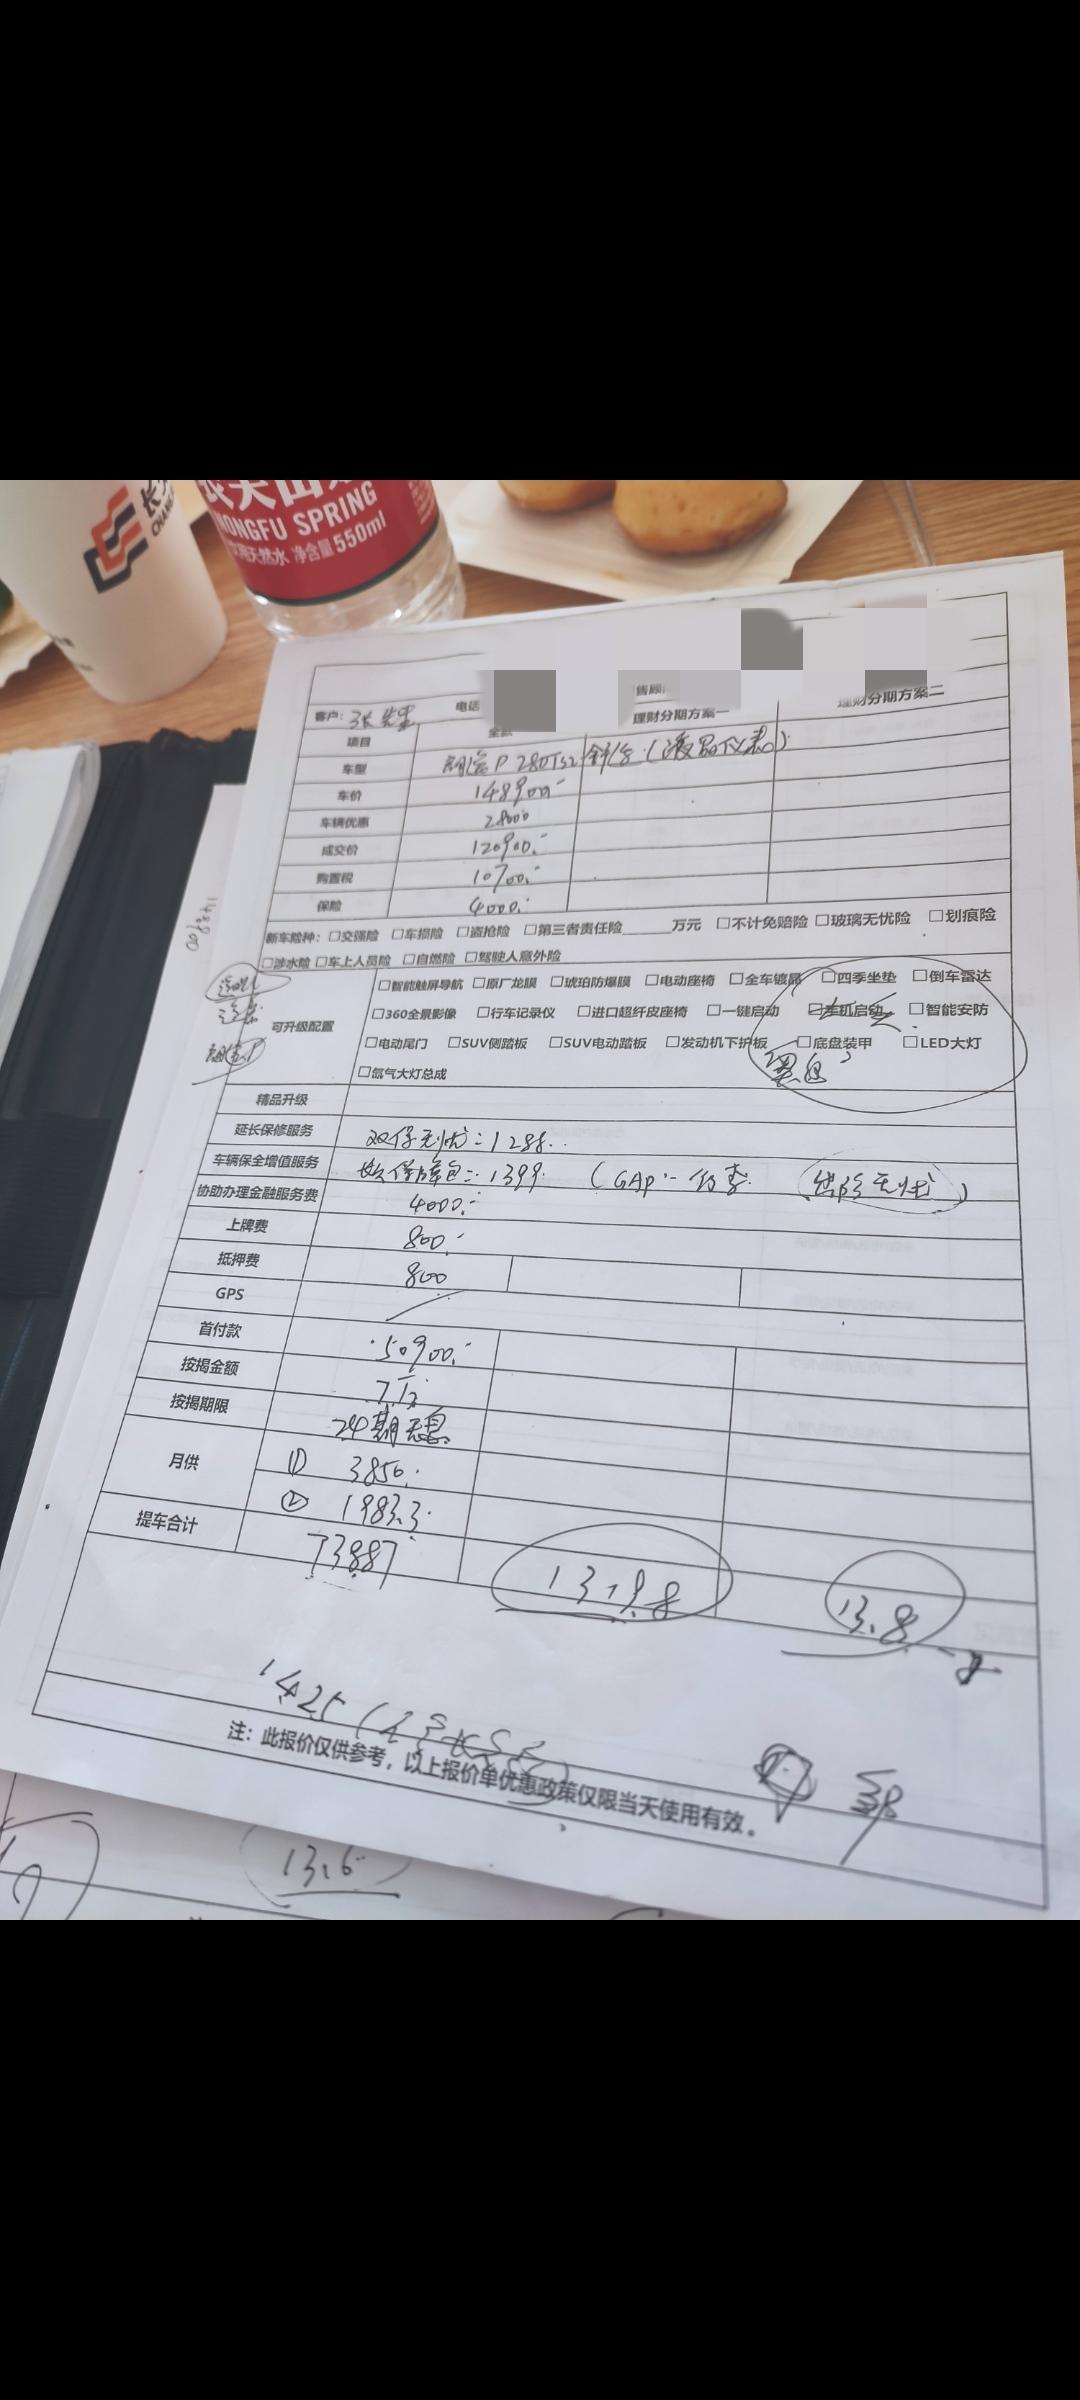 CHANG
农夫山
NONGFU SPRING
饮用天然水 净含量550ml
客户：张先生 电话 售顾
项目 全款 理财分期方案一 理财分期方案二
车型 朗逸P 280TSI 舒适（液晶仪表）
车价 148900
车辆优惠 28000
成交价 120900
购置税 10700
保险 4000
新车险种：□交强险 □车损险 □盗抢险 □第三者责任险______万元 □不计免赔险 □玻璃无忧险 □划痕险
□涉水险 □车上人员险 □自燃险 □驾驶人意外险
可升级配置
□智能触屏导航 □原厂龙膜 □琥珀防爆膜 □电动座椅 □全车镀晶 □四季坐垫 □倒车雷达
□360全景影像 □行车记录仪 □进口超纤皮座椅 □一键启动 □手机启动 □智能安防
□电动尾门 □SUV侧踏板 □SUV电动踏板 □发动机下护板 □底盘装甲 □LED大灯
□氙气大灯总成
精品升级
延长保修服务 双保无忧：1288
车辆保全增值服务 1399 （GAP
协助办理金融服务费 4000
上牌费 800
抵押费 800
GPS
首付款 50900
按揭金额 7万
按揭期限 24期无息
月供 ① 3850
② 1983.3
提车合计 73887 13.98 13.8
1425
注：此报价仅供参考，以上报价单优惠政策仅限当天使用有效。
13.6